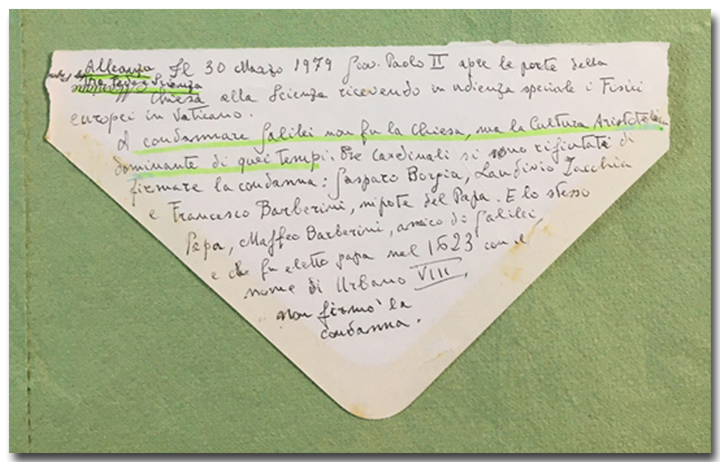 Alleanza Il 30 Marzo 1979 Giov. Paolo II apre le porte della
tra Fede e Scienza
Chiesa alla Scienza ricevendo in udienza speciale i Fisici
europei in Vaticano.
A condannare Galilei non fu la Chiesa, ma la Cultura Aristotelica
dominante di quei tempi. Tre cardinali si sono rifiutati di
firmare la condanna: Gasparo Borgia, Laudivio Zacchia
e Francesco Barberini, nipote del Papa. E lo stesso
Papa, Maffeo Barberini, amico di Galilei
e che fu eletto papa nel 1623 con il
nome di Urbano VIII,
non firmò la
condanna.